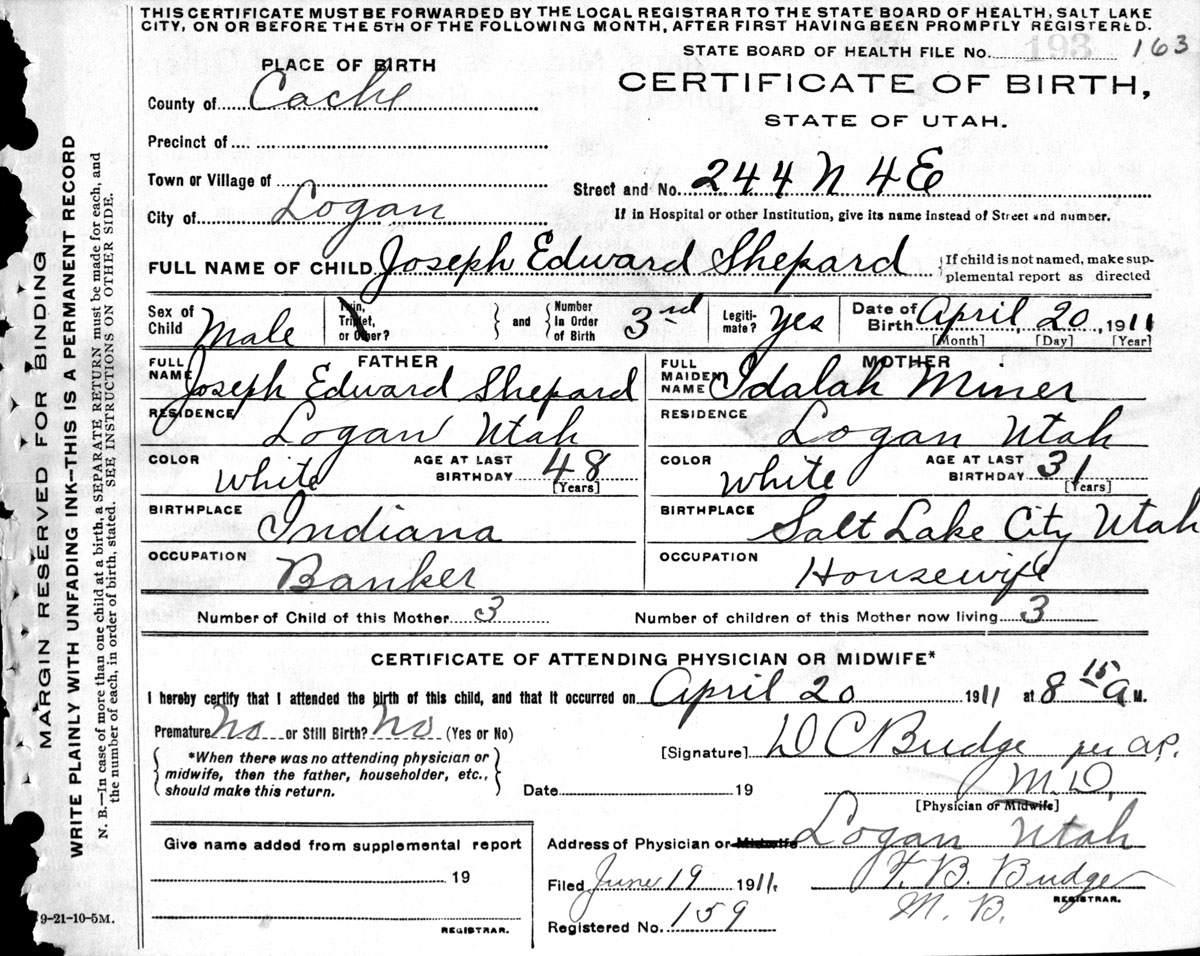 THIS CERTIFICATE MUST BE FORWARDED BY THE LOCAL REGISTRAR TO THE STATE BOARD OF HEALTH, SALT LAKE
CITY, ON OR BEFORE THE 5TH OF THE FOLLOWING MONTH, AFTER FIRST HAVING BEEN PROMPTLY REGISTERED.
STATE BOARD OF HEALTH FILE No. 193 163
PLACE OF BIRTH
CERTIFICATE OF BIRTH,
STATE OF UTAH.
County of Cache
Precinct of
Town or Village of
Street and No. 244 N 4 E
City of Logan
If in Hospital or other Institution, give its name instead of Street and number.
FULL NAME OF CHILD Joseph Edward Shepard
If child is not named, make sup-
plemental report as directed
Sex of Child Male
Twin, Triplet, or Other? and Number In Order of Birth 3rd
Legiti-mate? yes
Date of Birth April, 20, 1911
[Month] [Day] [Year]
FATHER
FULL NAME Joseph Edward Shepard
MOTHER
FULL MAIDEN NAME Idalah Miner
RESIDENCE Logan Utah
RESIDENCE Logan Utah
COLOR White AGE AT LAST BIRTHDAY 48 [Years]
COLOR White AGE AT LAST BIRTHDAY 31 [Years]
BIRTHPLACE Indiana
BIRTHPLACE Salt Lake City Utah
OCCUPATION Banker
OCCUPATION Housewife
Number of Child of this Mother 3 Number of children of this Mother now living 3
CERTIFICATE OF ATTENDING PHYSICIAN OR MIDWIFE*
I hereby certify that I attended the birth of this child, and that it occurred on April 20 1911 at 8 15 a M.
Premature No or Still Birth? No (Yes or No)
[Signature] D C Budge per a.P.
*When there was no attending physician or
midwife, then the father, householder, etc.,
should make this return.
Date 19 M.D.
[Physician or Midwife]
Give name added from supplemental report
19
REGISTRAR.
Address of Physician or Midwife Logan Utah
Filed June 19 1911. F. B. Budge
M. B. REGISTRAR.
Registered No. 159
9-21-10-5M.
MARGIN RESERVED FOR BINDING
WRITE PLAINLY WITH UNFADING INK—THIS IS A PERMANENT RECORD
N. B.—In case of more than one child at a birth, a SEPARATE RETURN must be made for each, and
the number of each, in order of birth, stated. SEE INSTRUCTIONS ON OTHER SIDE.